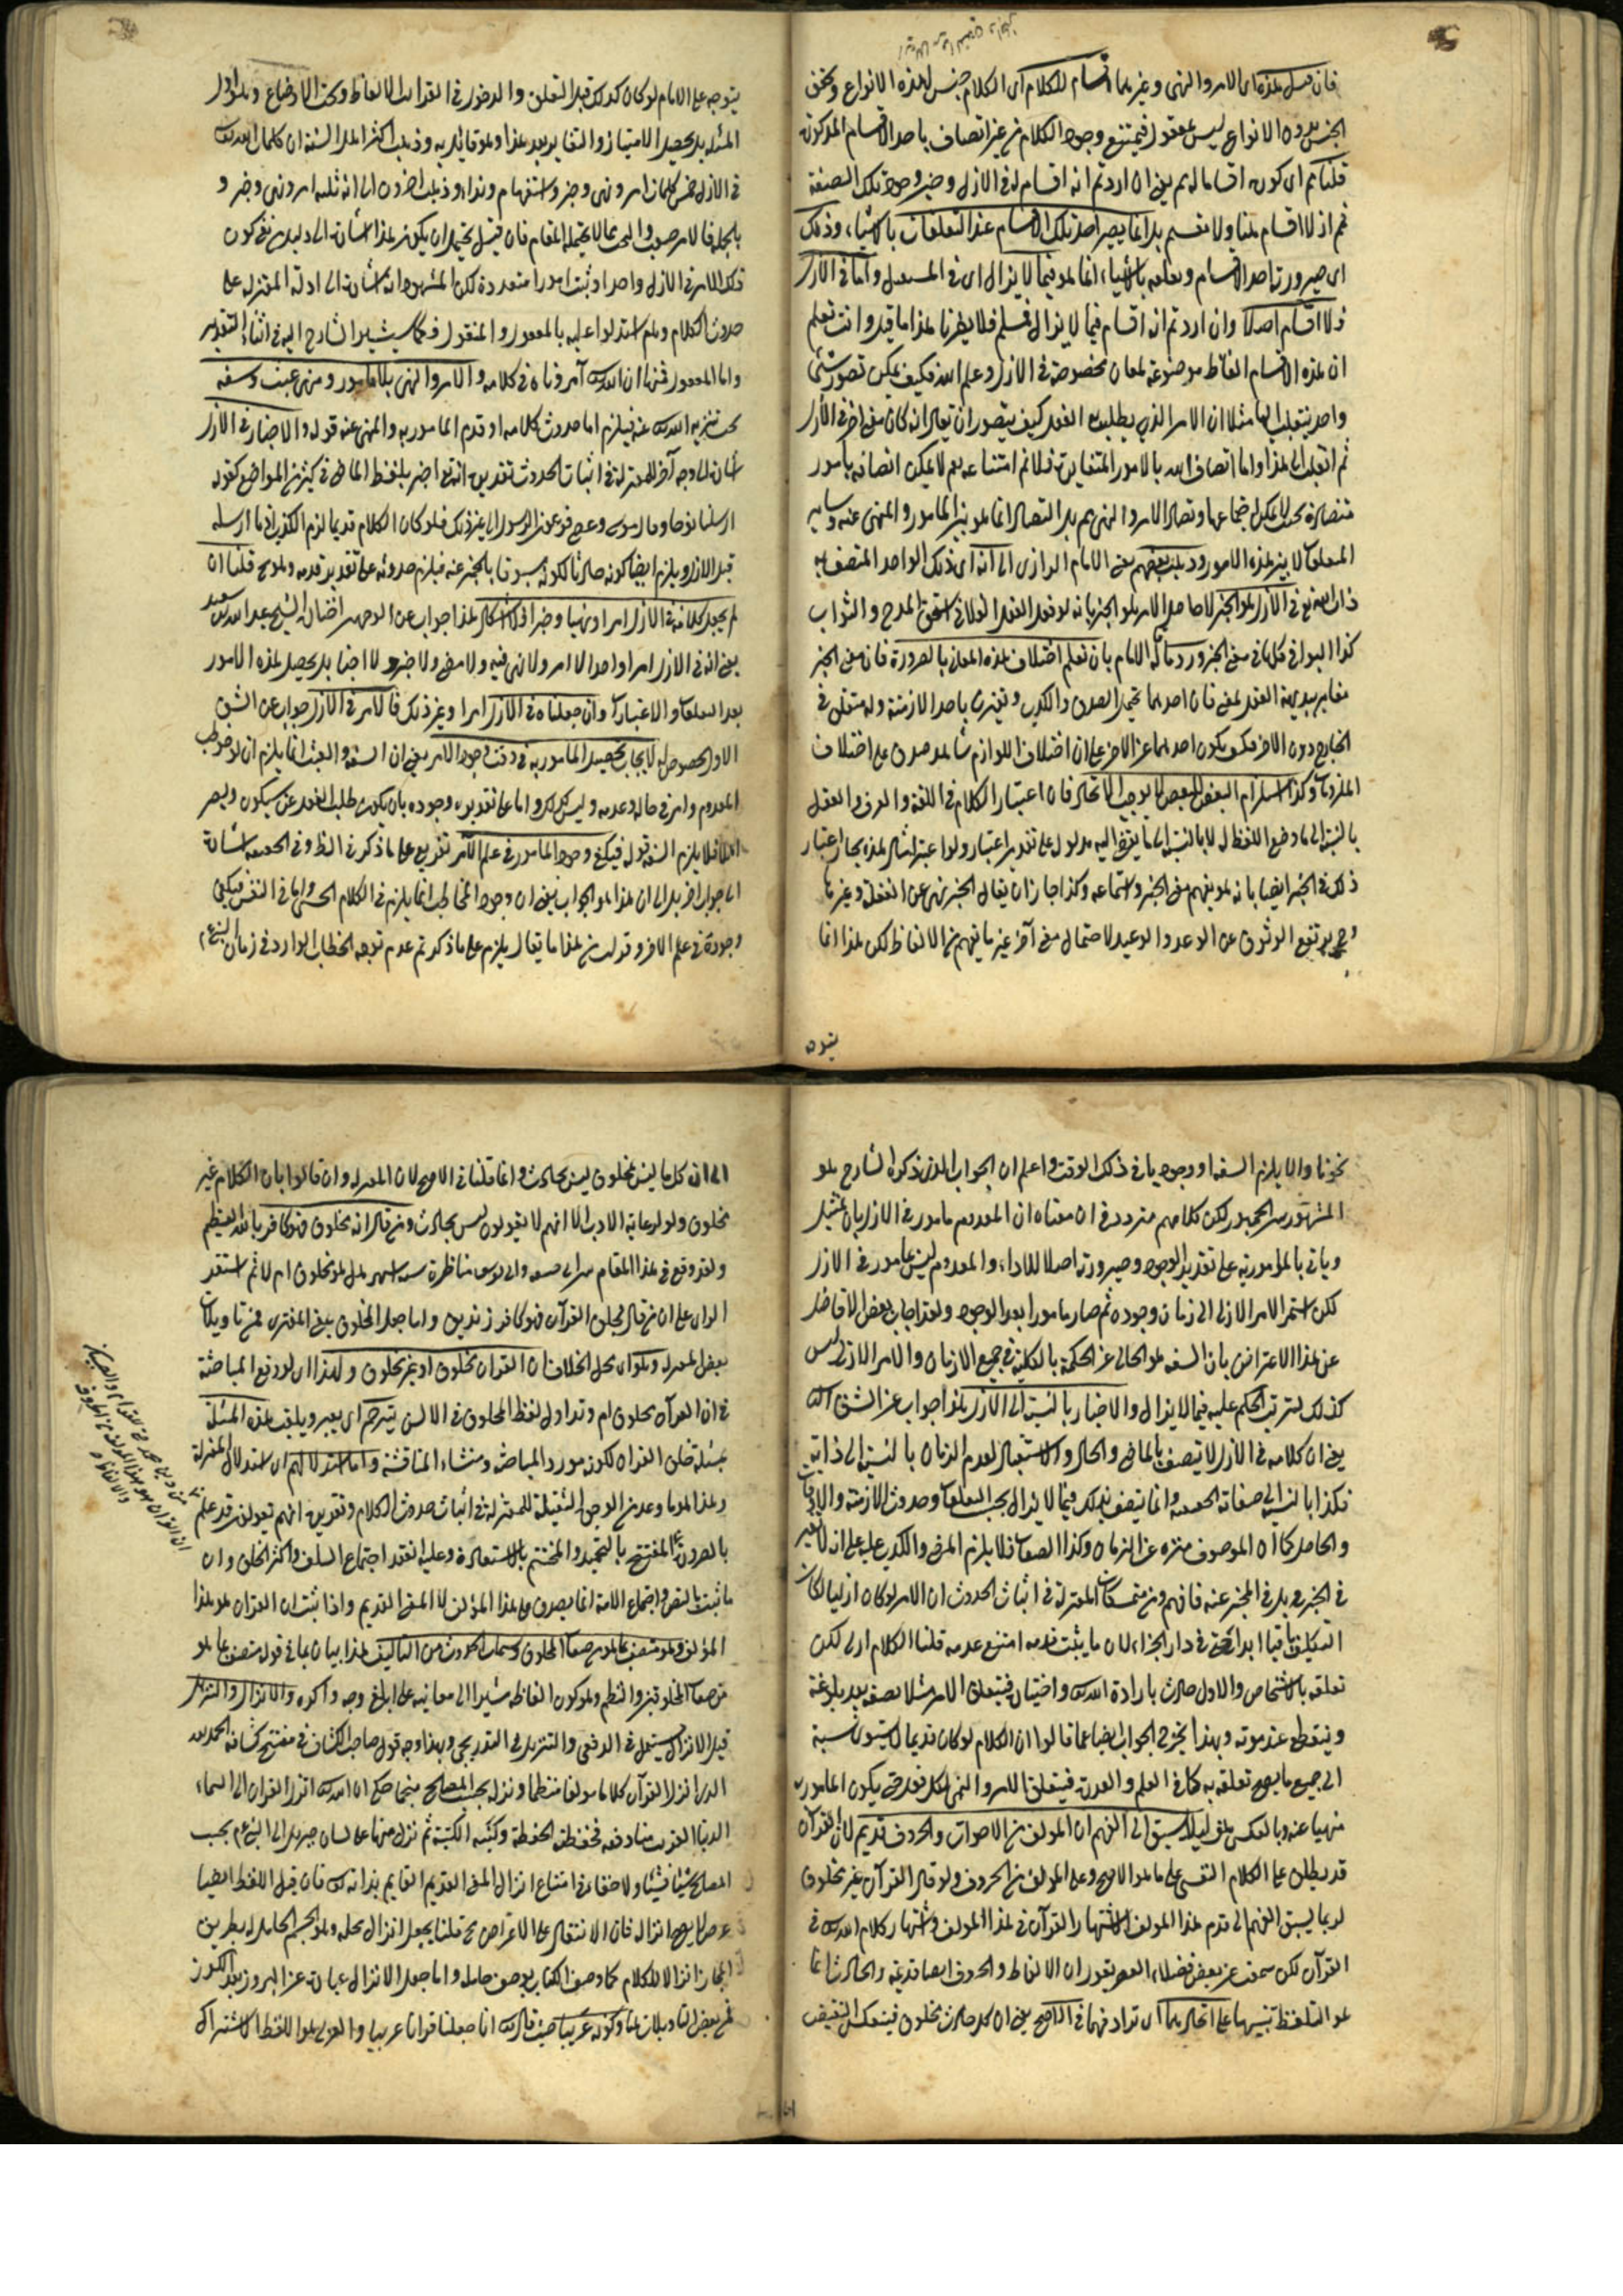 فان قيل هذه اى الامر والنهى وغيرهما اقسام للكلام اى الكلام جنس لهذه الانواع وتحقق
الجنس بدون الانواع ليس بمعقول فيمتنع وجود الكلام من غير اتصاف باحد الاقسام المذكورة
قلنا نم اى كون اقساما له نم يعنى ان اردتم انه اقسام له فى الازل وحين وجود تلك الصفة
نم اذ لا اقسام هناك ولا تقسيم بل انما يصير احد تلك الاقسام عند التعلقات بالاشياء وذلك
اى صيرورته احد الاقسام وتعلقه بالاشياء انما هو فيما لا يزال اى فى المستقبل واما فى الازل
فلا اقسام اصلا وان اردتم انه اقسام فيما لا يزال فمسلم فلا يضرنا هذا ما قيل وانت تعلم
ان هذه الاقسام الفاظ موضوعة لمعان مخصوصة فى الازل وعلم الله فكيف يمكن تصور شئ
واحد ينقلب اليها مثلا ان الامر الذى يطلب به الفعل كيف يتصور ان يقال انه كان معنى اخر فى الازل
ثم انقلب الى هذا واما اتصاف الله بالامور المتغايرة فلا نم امتناعه نعم لا يمكن اتصافه بامور
متضادة بحيث لا يمكن اجتماعها وتضاد الامر والنهى نم بل التضاد انما هو بين المأمور والمنهى عنه وساير
المتعلقات لا بين هذه الامور وذهب بعضهم يعنى الامام الرازى الى انه اى ذلك الواحد المتصف به
ذات الله تع فى الازل هو الخبر لان حاصل الامر هو الخبر بانه لو فعل الفعل الفلانى استحق المدح والثواب
كذا البواقى كل ما فى معنى الخبر ورد ما قاله الامام بان نعلم اختلاف هذه المعانى بالضرورة فان معنى الخبر
مغاير ببديهة العقل لمعنى فان احدهما يحتمل الصدق والكذب ويقترن باحد الازمنة وله متعلق فى
الخارج دون الاخر فكيف يكون احدهما عين الاخر على ان اختلاف اللوازم شاهد صدق على اختلاف
الملزومات وكذا استلزام البعض للبعض لا يوجب الاتحاد فان اعتبار الكلام فى اللغة والعرف والعقل
بالنسبة الى ما وضع اللفظ له لا بالنسبة الى ما يقتضى اليه مدلوله على تقدير اعتباره ولو اعتبر امثال هذه بجاز اعتبار
ذلك فى الخبر ايضا بانه هو بفهم معنى الخبر واستماعه وكذا جاز ان يقال الخبر نهى عن الغفلة وغيرها
وح يرتفع الوثوق عن الوعد والوعيد لاحتمال معنى آخر غير ما يفهم من الالفاظ لكن هذا انما
يتوجه
يتوجه على الامام لو كان كذلك قبل التعلق والدخول فى القوالب الالفاظ وتحت الاوضاع وهو اول
المسئلة بل يحصل الامتياز والتغاير بعد هذا وهو قائل به وذهب اكثر اهل السنة ان كلمات الله تع
فى الازل خمس كلمات امر ونهى وخبر واستفهام ونداء وذهب اخرون الى انه ثلثة امر ونهى وخبر و
بالجملة فالامر صعب والبحث مما لا يحتمله المقام فان قيل يحتمل ان يكون هذا اشارة الى دليل من نفى كون
ذلك الامر فى الازل واحدا وثبت امورا متعددة لكن المشهور انه اشارة الى ادلة المعتزلة على
حدوث الكلام وهم استدلوا عليه بالمعقول والمنقول فكما سيشير الشارح اليه فى اثناء التقرير
واما المعقول فمنها ان الله تع آمر وناه فى كلامه والامر والنهى بلا مأمور ومنهى عبث وسفه
يجب تنزيه الله تع عنه فيلزم اما حدوث كلامه او قدم المأمور به والمنهى عنه قوله والاخبار فى الازل
اشارة الى وجه آخر للمعتزلة فى اثبات الحدوث تقديره انه تع اخبر بلفظ الماضى فى كثير من المواضع كقوله
ارسلنا نوحا وقال موسى وعصى فرعون الرسول الى غير ذلك فلو كان الكلام قديما لزم الكذب اذ ما ارسله
قبل الازل ويلزم ايضا كونه حادثا لكونه مسبوقا بالمخبر عنه فيلزم حدوثه على تقدير قدمه وهو مح قلنا ان
لم يجعل كلامه فى الازل امرا ونهيا وخبرا فلا اشكال هذا جواب عن الوجهين اختاره الشيخ عبد الله بن سعيد
يعنى انه فى الازل امرا واحدا لا امر ولا نهى فيه ولا مضى ولا خبر ولا اخبار بل يحصل هذه الامور
بعد التعلقات والاعتبارات وان جعلناه فى الازل امرا وغير ذلك فالامر فى الازل جواب عن الشق
الاول لحصوص له لايجاب تحصيل المأمور به فى وقت وجود الامر يعنى ان السفه والعبث انما يلزم ان لو خوطب
المعدوم وامر فى حالة عدمه وليس كذلك واما على تقدير وجوده بان يكون طلب الفعل عمن سيكون ويصير
اهلا فلا يلزم السفه قوله فيكفى وجود المأمور فى علم الآمر تفريع على ما ذكر فى الظ وفى الحقيقة اشارة
الى جواب اخر بل الى ان هذا هو الجواب يعنى ان وجود المخاطب انما يلزم فى الكلام الحسى واما فى النفسى فيكفى
وجوده فى علم الامر وقد اجيب من هذا ما يقال يلزم على ما ذكرتم عدم توجه الخطاب الوارد فى زمان النبى عم
نحونا والا يلزم السفه او وجودنا فى ذلك الوقت واعلم ان الجواب الذى ذكره الشارح هو
المشهور بين الجمهور لكن كلامهم متردد فى ان معناه ان المعدوم مأمور فى الازل بان يمتثل
وياتى بالمأمور به على تقدير الوجود وصيرورته اهلا للاداء والمعدوم ليس بمأمور فى الازل
لكن استمر الامر الازلى الى زمان وجوده ثم صار مأمورا بعد الوجود ولقد اجاب بعض الافاضل
عن هذا الاعتراض بان السفه هو الخالى عن الحكمة بالكلية فى جميع الازمان والامر الازلى ليس
كذلك لترتب الحكم عليه فيما لا يزال والاخبار بالنسبة الى الازل هذا جواب عن الشق الثانى
يعنى ان كلامه فى الازل لا يتصف بالماضى والحال والاستقبال لعدم الزمان بالنسبة الى ذاته
فكذا بالنسبة الى صفاته الحقيقية وانما يتصف بذلك فيما لا يزال بحسب التعلقات وحدوث الازمنة والاوقات
والحاصل كما ان الموصوف منزه عن الزمان وكذا الصفات فلا يلزم المضى والكذب عليه على انه لا تغير
فى الخبر بل فى المخبر عنه فافهم ومن متمسكات المعتزلة فى اثبات الحدوث ان الامر لو كان ازليا لكان
التكليف باقيا ابدا حتى فى دار الجزاء لان ما يثبت قدمه امتنع عدمه قلنا الكلام ازلى لكن
تعلقه بالاشخاص والاول حادث بارادة الله تع واختياره فيتعلق الامر مثلا بصفة بعد بلوغه
وينقطع عند موته وبهذا يخرج الجواب ايضا عما قالوا ان الكلام لو كان قديما لاستوى نسبة
الى جميع ما يصح تعلقه به كما فى العلم والقدرة فيتعلق الامر والنهى لكل فعل حتى يكون المأمور به
منهيا عنه وبالعكس هف لئلا يسبق الى الفهم ان المؤلف من الاصوات والحروف قديم لان القرآن
قد يطلق على الكلام النفسى على ما هو الاصح وعلى المؤلف من الحروف ولو قال القرآن غير مخلوق
لربما يسبق الفهم الى قدم هذا المؤلف لاشتهار القرآن فى هذا المؤلف واشتهار كلام الله تع فى
القرآن لكن سمعت عن بعض فضلاء العصر يقول ان الالفاظ والحروف ايضا قديمة والحادث انما
هو التلفظ تنبيها على اتحادهما اى ترادفهما فى الاصح يعنى ان كل حادث مخلوق فينعكس النقيض
الى ان كل ما ليس بمخلوق ليس بحادث وانما قلنا فى الاصح لان المعتزلة وان قالوا بان الكلام غير
مخلوق ولو لرعاية الادب الا انهم لا يقولون ليس بحادث ومن قال انه مخلوق فهو كافر بالله العظيم
ولقد وقع فى هذا المقام بين ابى حنيفة وابى يوسف مناظرة ستة اشهر هل هو مخلوق ام لا ثم استقر
الراى على ان من قال بخلق القرآن فهو كافر زنديق واما جعل المخلوق بمعنى المفترى فمن تاويلات
بعض المعتزلة وهو ان محل الخلاف ان القرآن مخلوق او غير مخلوق ولهذا اى لوقوع المباحثة
فى ان القرآن مخلوق ام وتداول لفظ المخلوق فى الالسن يترجم اى يعبر ويلقب هذه المسئلة
بمسئلة خلق القرآن لكونه مورد المباحثة ومنشاء المناقشة واما استدلالهم اى استدلال المعتزلة
وهذا هو ما وعد من الوجوه النقلية للمعتزلة فى اثبات حدوث الكلام وتقريره انهم يقولون قد علم
بالضرورة المفتتح بالتحميد والمختتم بالاستعاذة وعليه انعقد اجماع السلف واكثر الخلق وان
ما ثبت بالنص واجماع الامة انما يصدق على هذا المؤلف لا المعنى القديم واذا ثبت ان القرآن هو هذا
المؤلف وهو متصف بما هو من صفات المخلوق وسمات الحدوث من التاليف هذا بيان بما فى قوله متصف بما هو
من صفات المخلوقين والنظم وهو كون الفاظه مشيرا الى معانيه على ابلغ وجه واكده والانزال والتنزيل
قيل الانزال يستعمل فى الدفعى والتنزيل فى التدريجى وبهذا وجه قول صاحب الكشاف فى مفتتح كشافه الحمد لله
الذى انزل القرآن كلاما مؤلفا منظما ونزله بحسب المصالح منجما حكى ان الله تع انزل القرآن الى السماء
الدنيا دفعة فحفظه الحفظة وكتبه الكتبة ثم نزل منها على لسان جبريل الى النبى عم بحسب
المصالح شيئا فشيئا ولا خفاء فى امتناع انزال المعنى القديم القايم بذاته تع فان قيل اللفظ ايضا
عرض لا يصح انزاله فان الانتقال على الاعراض مح قلنا يجعل انزال محله وهو الجسم الحامل له بطريق
المجاز انزالا للكلام كما وصف الكتاب بوصف حامله واما جعل الانزال عبارة عن البروز بعد الكون
فمن بعض التاويلات هنا وكونه عربيا حيث قال تع انا جعلناه قرآنا عربيا والعربى هو اللفظ لاشتراك